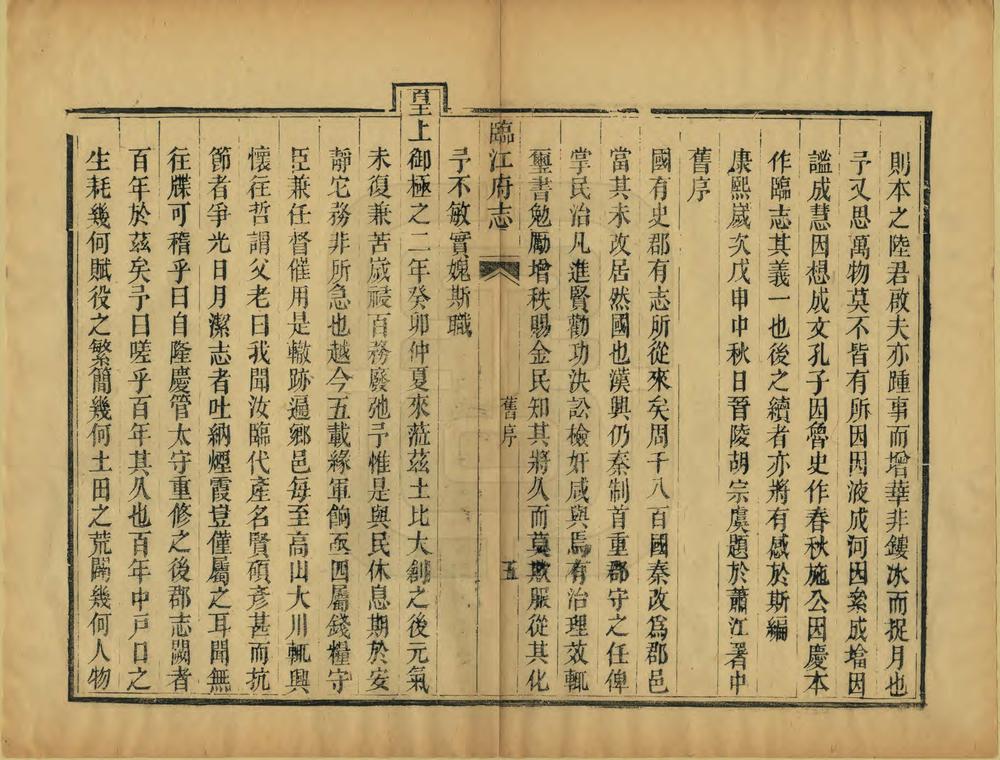 則本之陸君敢夫亦踵事而增華非鏤冰而捉月也
予又思萬物莫不皆有所因因液成河因絫成墖因
謐成慧因想成文孔子因魯史作春秋施公因慶本
作臨志其義一也後之續者亦將有感於斯編
康熙歲次戊申中秋日晉陵胡宗虞題於蕭江署中
舊序
國有史郡有志所從來矣周千八百國秦改爲郡邑
當其未改居然國也漢興仍秦制首重郡守之任俾
掌民治凡進賢勸功決訟檢奸咸與焉有治理效輒
璽書勉勵增秩賜金民知其將久而莫欺服從其化
臨江府志
舊序
五
予不敏實媿斯職
皇上御極之二年癸卯仲夏來蒞茲土比大創之後元氣
未復兼苦歲祲百務廢弛予惟是與民休息期於安
靜它務非所急也越今五載緣軍餉亟四屬錢糧守
臣兼任督催用是轍跡遍鄉邑每至高山大川輒興
懷往哲謂父老曰我聞汝臨代產名賢碩彥甚而抗
節者爭光日月潔志者吐納煙霞豈僅屬之耳聞無
往牒可稽乎曰自隆慶管太守重修之後郡志闕者
百年於茲矣予曰嗟乎百年其久也百年中戸口之
生耗幾何賦役之繁簡幾何土田之荒闢幾何人物